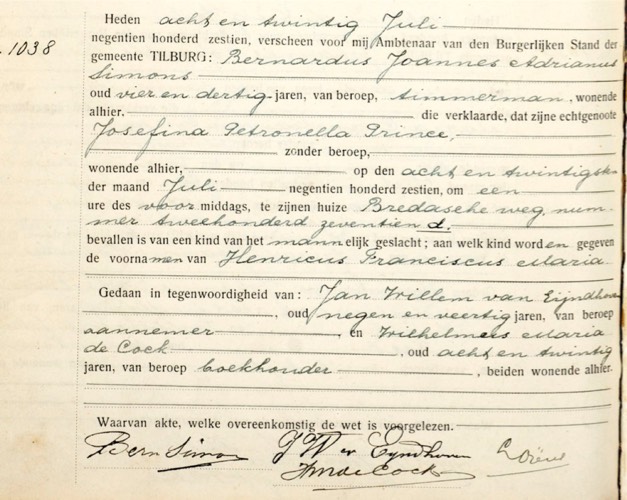 Heden acht en twintig Juli
. 1038
negentien honderd zestien, verscheen voor mij Ambtenaar van den Burgerlijken Stand der
gemeente TILBURG: Bernardus Joannes Adrianus
Simons
oud vier en dertig jaren, van beroep, timmerman, wonende
alhier. die verklaarde, dat zijne echtgenoote
Josefina Petronella Prince,
zonder beroep,
wonende alhier, op den acht en twintigste
der maand Juli negentien honderd zestien, om een
ure des voor middags, te zijnen huize Bredasche weg, num-
mer tweehonderd zeventien d.
bevallen is van een kind van het mannelijk geslacht; aan welk kind worden gegeven
de voornamen van Henricus Franciscus Maria
Gedaan in tegenwoordigheid van: Jan Willem van Eijndhoven
, oud negen en veertig jaren, van beroep
aannemer, en Wilhelmus Maria
de Cock, oud acht en twintig
jaren, van beroep boekhouder, beiden wonende alhier.
Waarvan akte, welke overeenkomstig de wet is voorgelezen.
Bern Simons J W v Eyndhoven
WM de Cock